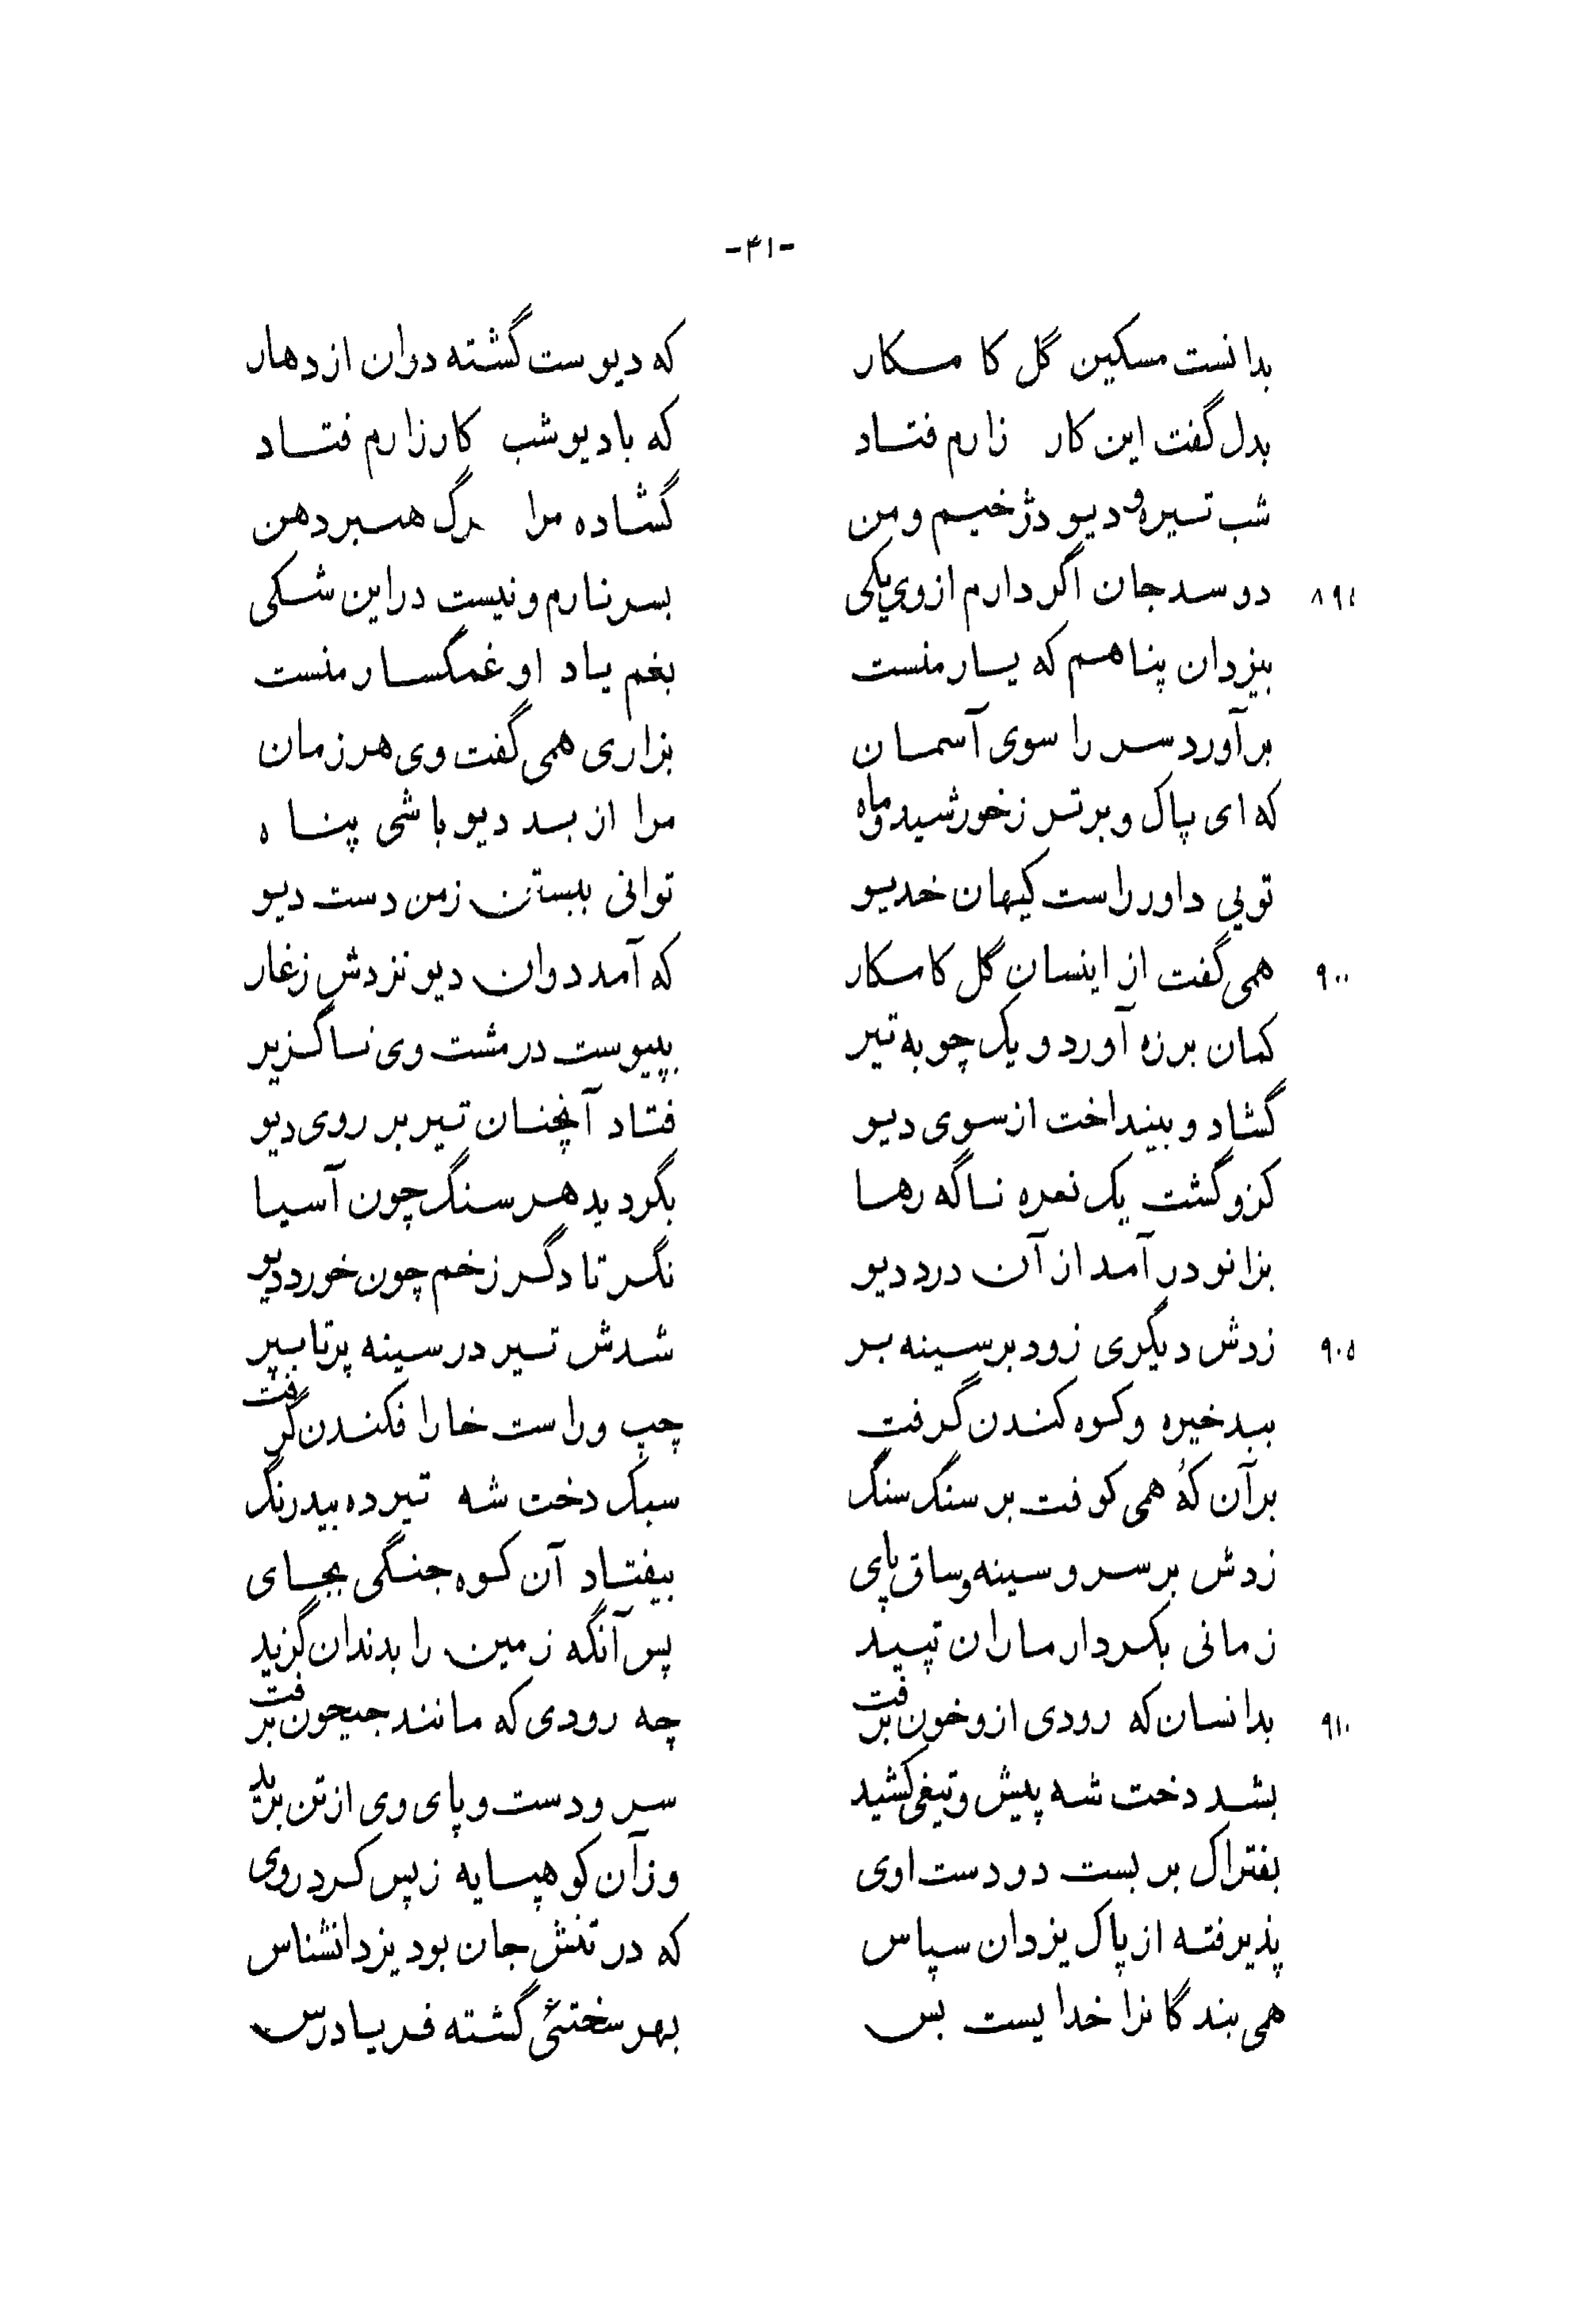 -۴۱-
بدانست مسکین گل کا مسکار که دیوست گشته دوان از دهار
بدل گفت این کار زارم فتاد که با دیو شب کارزارم فتاد
شب تیره و دیو دژخیم و من گشاده مرا مرگ هسبر دهن
۸۹۵ دو سد جان اگر دارم از وی یکی بسر نارم و نیست در این شکی
بیزدان پناهم که یار منست بغم یاد او غمگسار منست
بر آورد سر را سوی آسمان بزاری همی گفت وی هر زمان
که ای پاک و برتر ز خورشید و ماه مرا از بد دیو باشی پناه
تویی داور راست کیهان خدیو توانی ببستن ز من دست دیو
۹۰۰ همی گفت از اینسان گل کامسکار که آمد دوان دیو نزدش ز غار
کمان بر زه آورد و یک چوبه تیر بپیوست در مشت وی ناگزیر
گشاد و بینداخت از سوی دیو فتاد آنچنان تیر بر روی دیو
کزو گشت یک نعره ناگه رها بگردید هر سنگ چون آسیا
بزانو در آمد از آن درد دیو نگر تا دگر زخم چون خورد دیو
۹۰۵ زدش دیگری زود بر سینه بر شدش تیر در سینه پر تا بپر
ببد خیره و کوه کندن گرفت چپ و راست خارا فکندن گرفت
بر آن کُه همی کوفت بر سنگ سنگ سبک دخت شه تیر ده بیدرنگ
زدش بر سر و سینه و ساق پای بیفتاد آن کوه جنگی بجای
زمانی بکردار ماران تپید پس آنگه زمین را بدندان گزید
۹۱۰ بدانسان که رودی ازو خون برفت چه رودی که مانند جیحون برفت
بشد دخت شه پیش و تیغی کشید سر و دست و پای وی از تن برید
بفتراک بر بست دو دست اوی وز آن کوهپایه ز پس کرد روی
پذیرفته از پاک یزدان سپاس که در تنش جان بود یزدانشناس
همی بندگانرا خدایست بس بهر سختئی گشته فریادرس